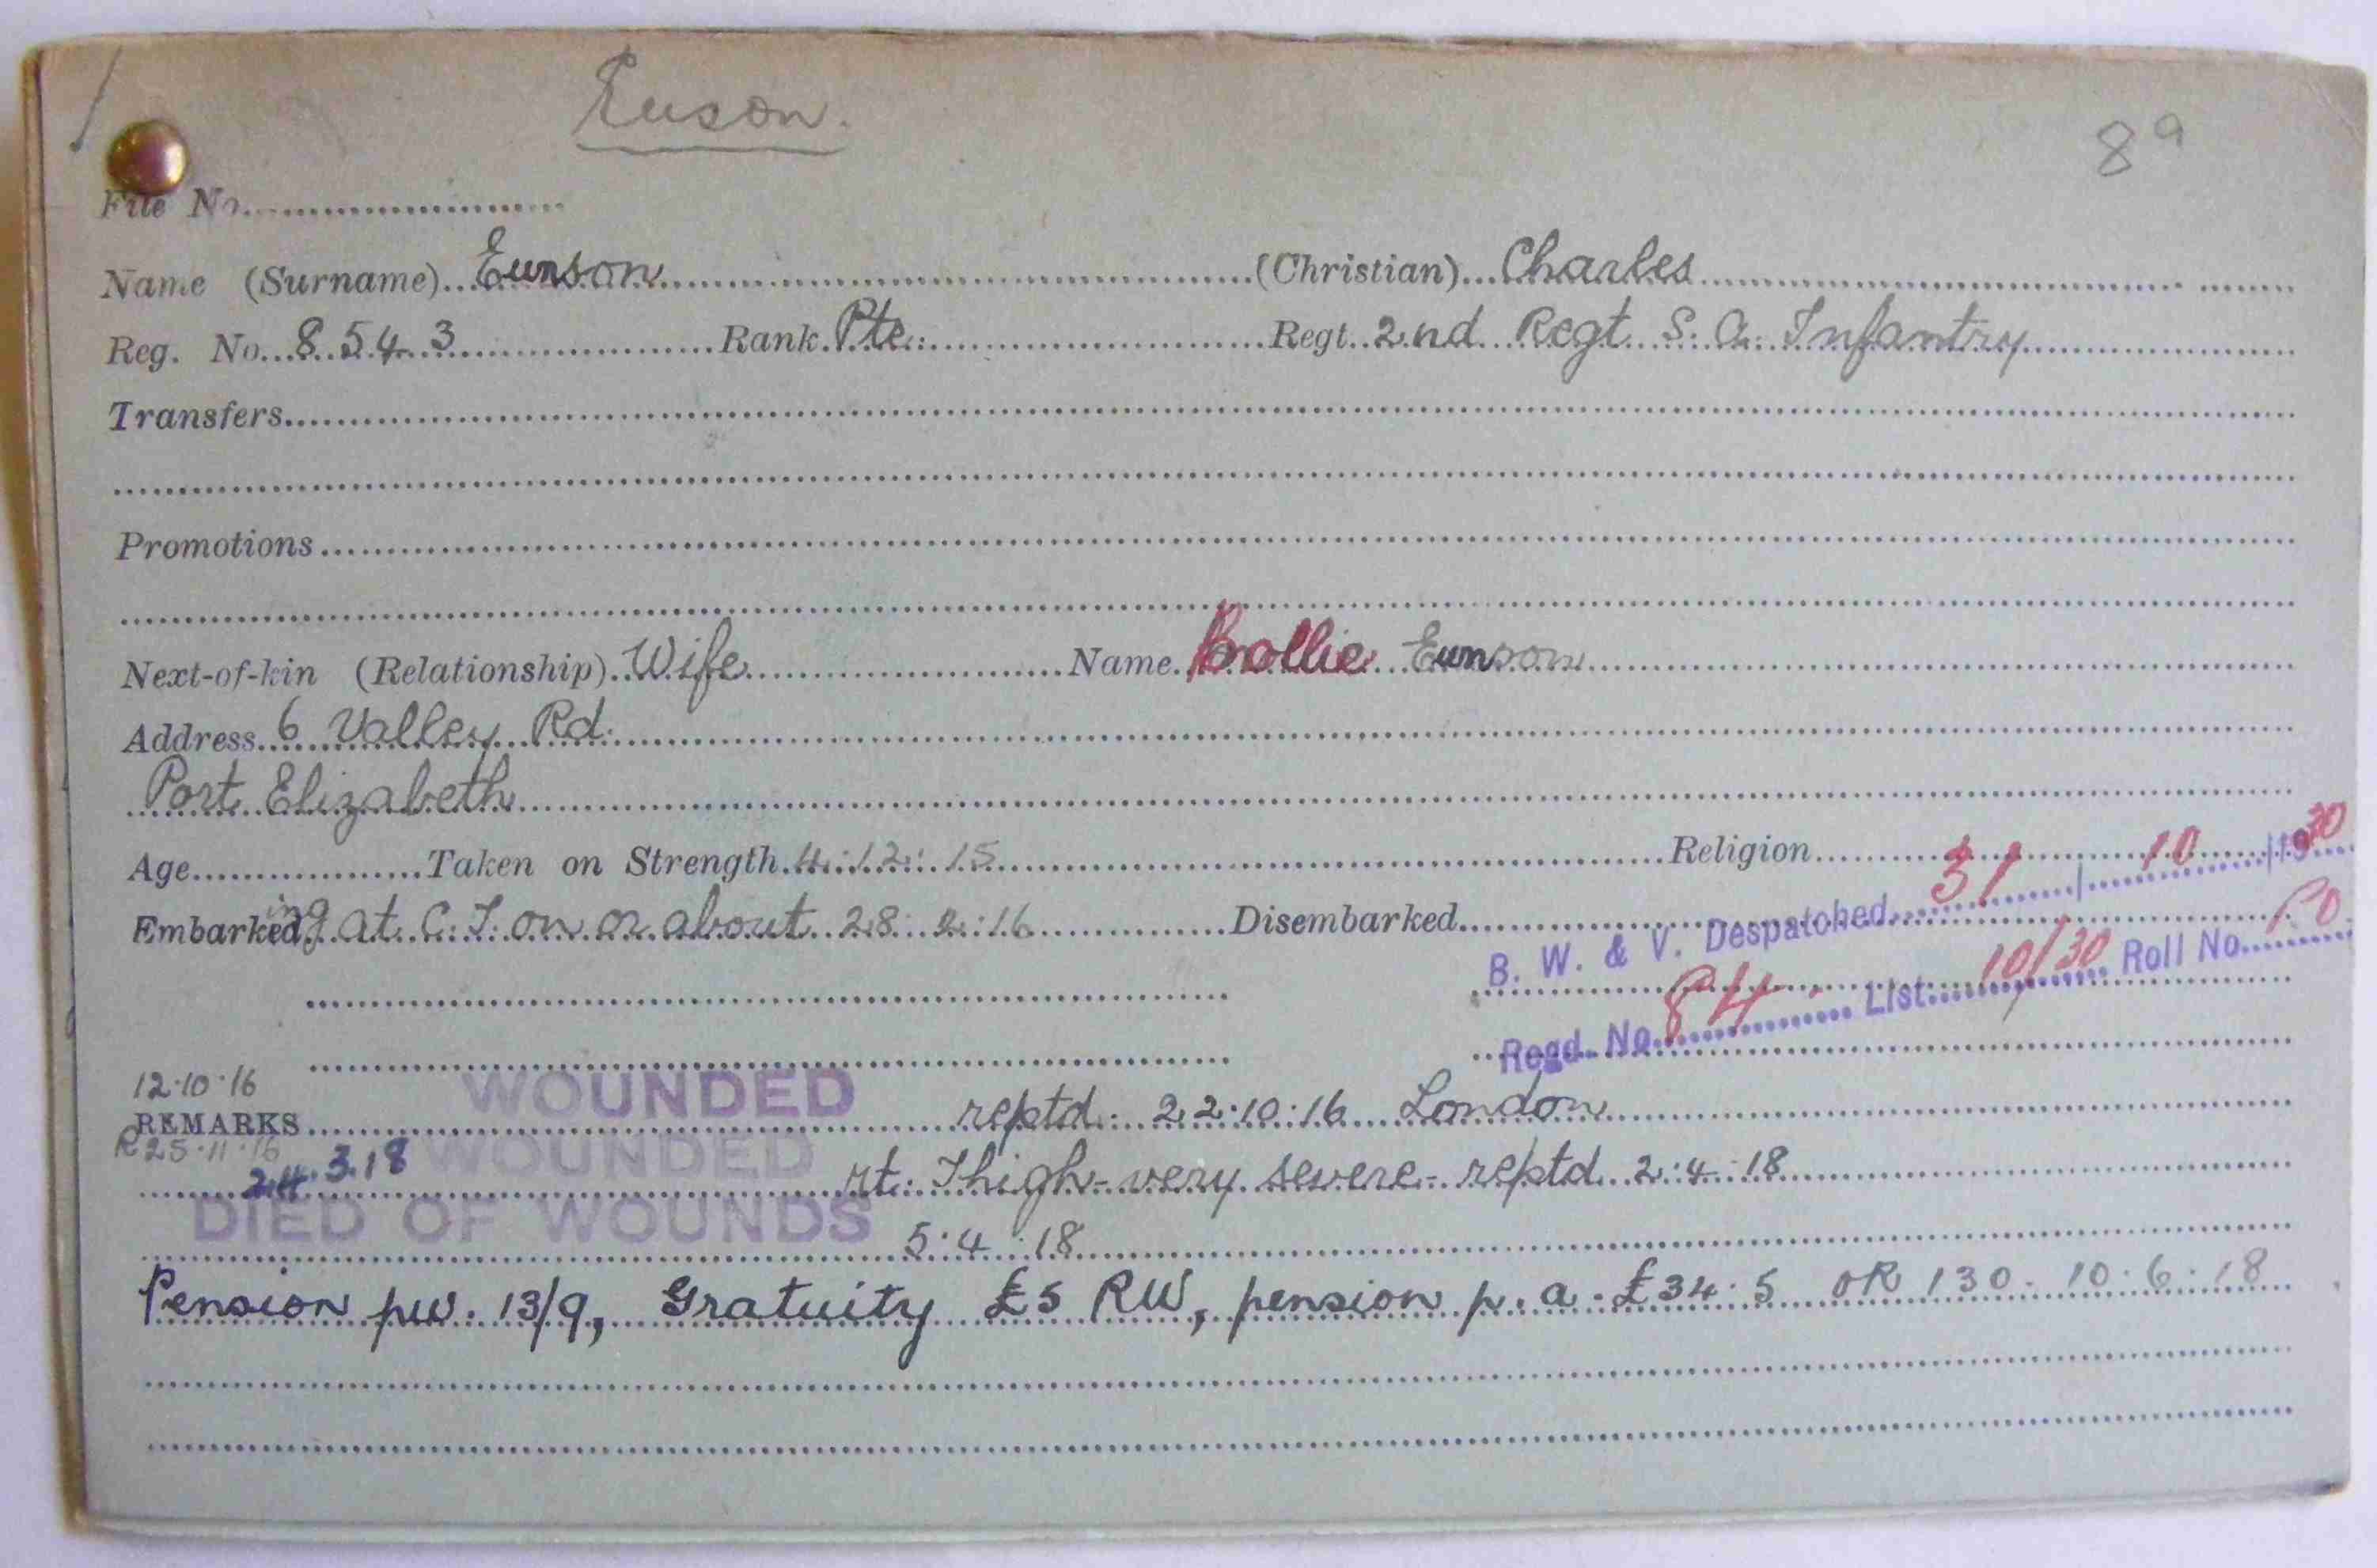 Euson.
8a
File No.
Name (Surname) Eunson (Christian) Charles
Reg. No. 8543 Rank Pte. Regt. 2nd Regt S. A. Infantry
Transfers
Promotions
Next-of-kin (Relationship) Wife Name Eunson
Address 6 Valley Rd.
Port Elizabeth
Age Taken on Strength 4.12.15 Religion
Embarking at C.T. on or about 28.2.16 Disembarked
B. W. & V. Despatched 31 | 10 | 1930
Regd. No. 84 List 10/30 Roll No.
12.10.16
REMARKS WOUNDED reptd. 22.10.16 London
R 25.11.16
24.3.18 WOUNDED rt. Thigh - very severe - reptd 2.4.18
DIED OF WOUNDS 5.4.18
Pension pw. 13/9, Gratuity £5 RW, pension p.a. £34.5 OR 130. 10.6.18